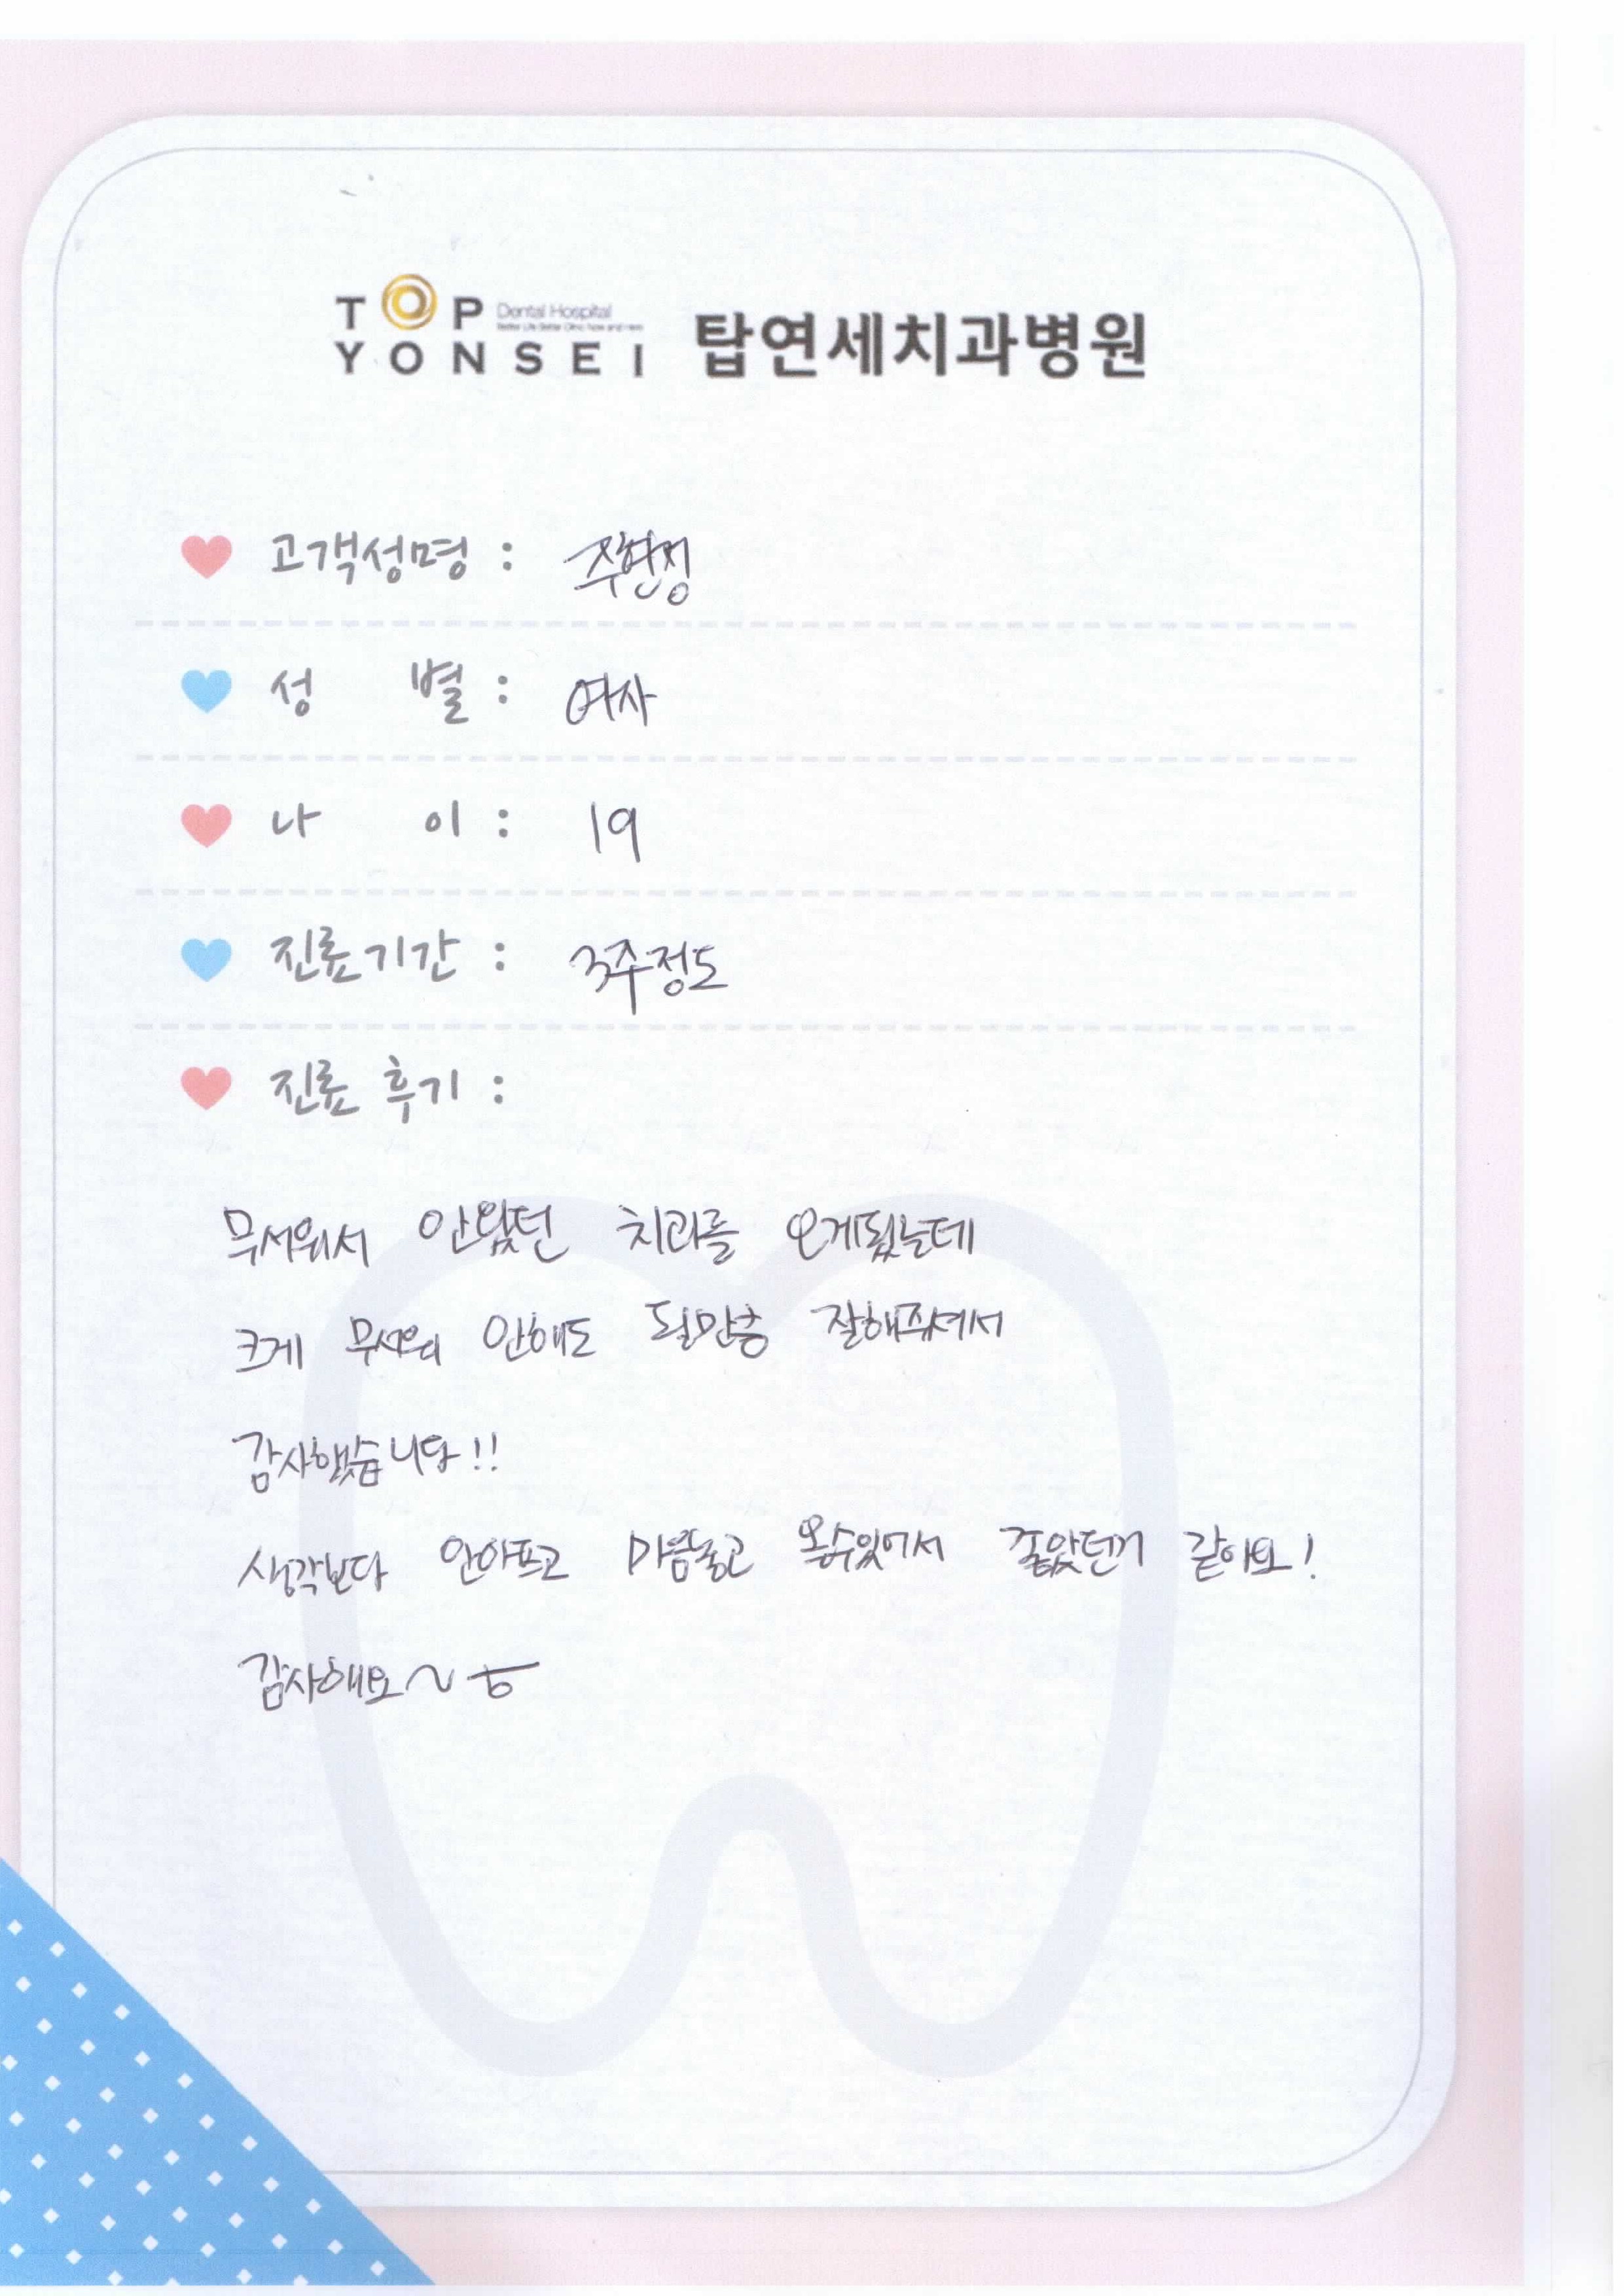 TOP Dental Hospital
YONSEI 탑연세치과병원
고객성명 : 주현정
성 별 : 여자
나 이 : 19
진료기간 : 3주정도
진료 후기 :
무서워서 안왔던 치과를 오게됬는데
크게 무서워 안해도 될만큼 잘해주셔서
감사했습니다!!
생각보다 안아프고 마음놓고 올수있어서 좋았던거 같아요!
감사해요~ㅎ